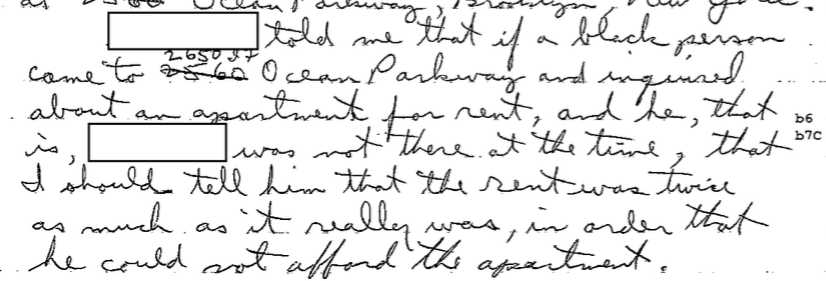 Ocean Parkway, Brooklyn, New York.
told me that if a black person
2650
came to 2560 Ocean Parkway and inquired
about an apartment for rent, and he, that b6
is, was not there at the time, that b7C
I should tell him that the rent was twice
as much as it really was, in order that
he could not afford the apartment.